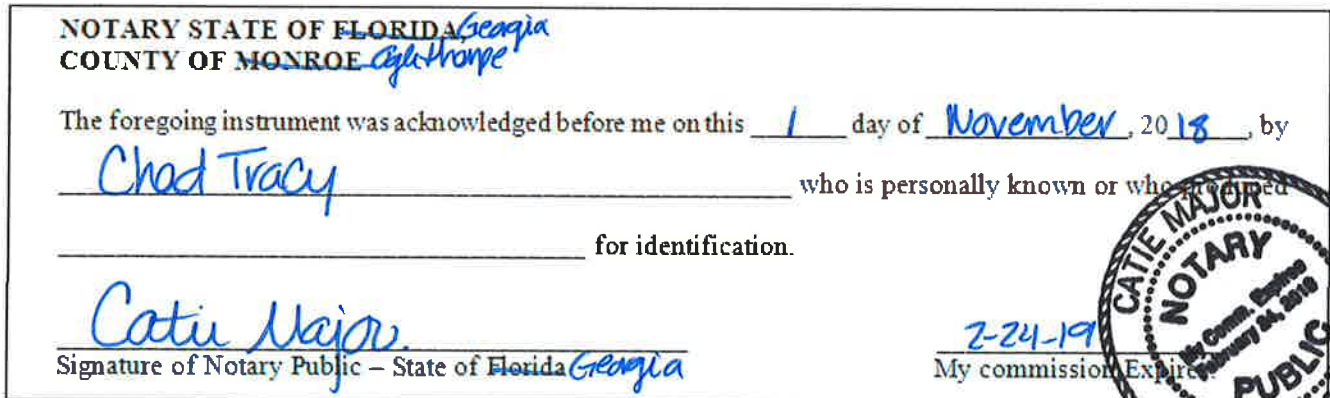 NOTARY STATE OF FLORIDA, Georgia
COUNTY OF MONROE Oglethorpe
The foregoing instrument was acknowledged before me on this 1 day of November, 2018, by
Chad Tracy who is personally known or who produced
for identification.
Catie Major
2-24-19
Signature of Notary Public – State of Florida Georgia
My commission Expires
CATIE MAJOR
NOTARY
My Comm. Expires
February 24, 2019
PUBLIC